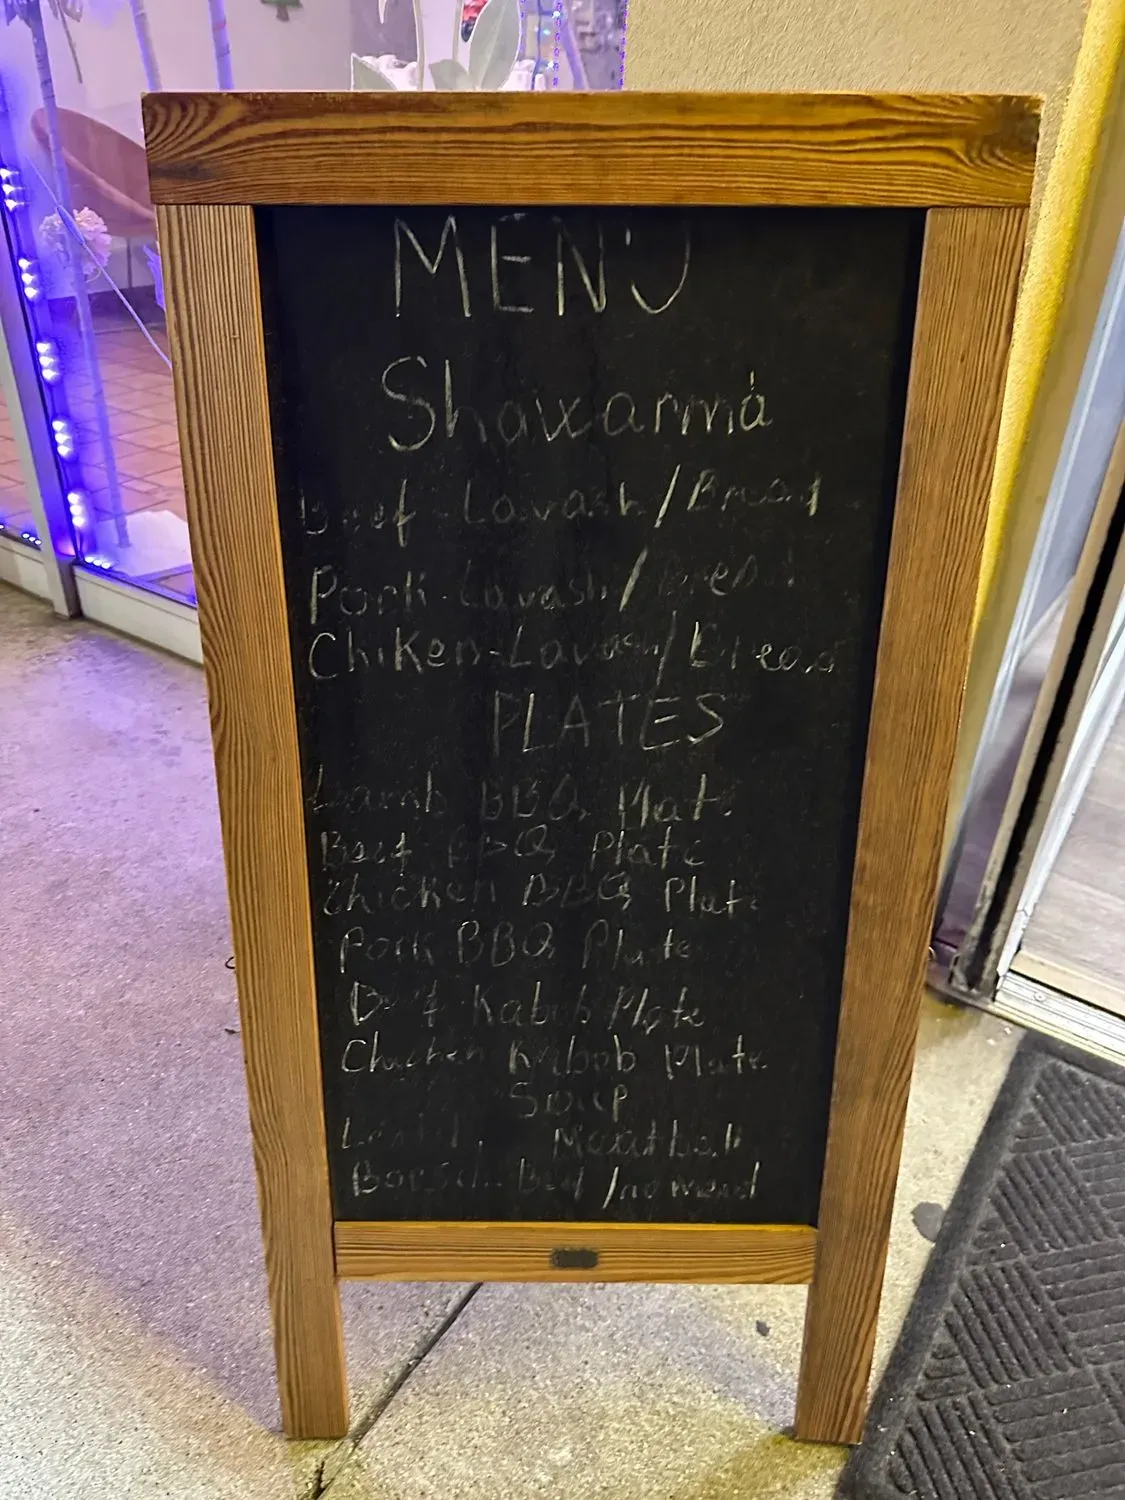 MENU
Shawarma
Beef-Lavash/Bread
Pork-Lavash/Bread
Chiken-Lavash/Bread
PLATES
Lamb BBQ Plate
Beef BBQ Plate
Chicken BBQ Plate
Pork BBQ Plate
Beef Kabob Plate
Chicken Kabob Plate
Soup
Lentil, Meatball
Borsch-Beef/no